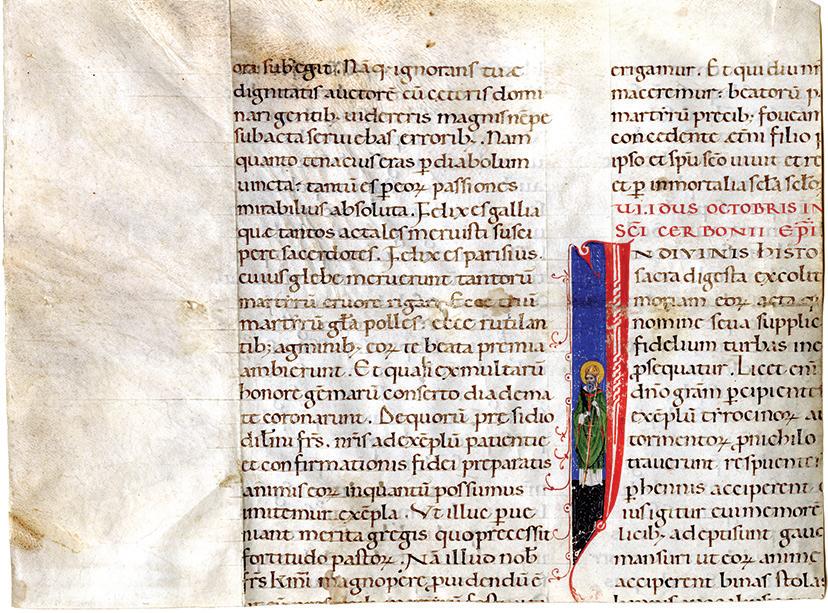 ora subegit. Nā q; ignorans tuę
dignitatis auctorē cū ceteris domi
nari gentib; videreris magnis nępe
subacta serviebas errorib;. Nam
quanto tenacius eras p diabolum
vincta: tantū es p eoꝝ passiones
mirabilius absoluta. Felix es gallia
que tantos ac tales meruisti susci
pere sacerdotes. Felix es parisius.
cuius glebe meruerunt tantorū
martyrū cruore rigari. Ecce
martyrū gła polles: ecce rutilan
tib; agminib; eoꝝ te beata premia
ambierunt. Et quasi ex multarū
honore gēmarū conserto diadema
te coronarunt. De quorū presidio
dił̄mi frs. nr̄is ad exēplū patientię
et confirmationis fidei preparatis
animis eoꝝ inquantū possumus
imitemur exēpla. Ut illuc pue
niant merita gregis quo precessit
fortitudo pastoꝝ. Nā illud nob̄
frs kmi magnopere pvidendū ē
erigamur. Et qui diuini
maceremur: beatorū p
martyrū precib; foueam
concedente ętn̄i filio
ipso et spū sc̄o uiuit et re
et p inmortalia sc̄la sc̄loꝝ
VI. IDUS OCTOBRIS IN
SC̄I CERBONII EP̄I
IN DIVINIS HISTO
sacra digesta excolit
moriam eoꝝ acta
nomine seua supplic
fidelium turbas inc
psequatur. Licet eni
dn̄o grām pcipient
exēplū
tormentoꝝ p nichilo
trauerunt respuente
phennis acciperent
ius igitur cui memore
licib; adeptisunt gau
mansuri ut eoꝝ anime
acciperent binas stolas